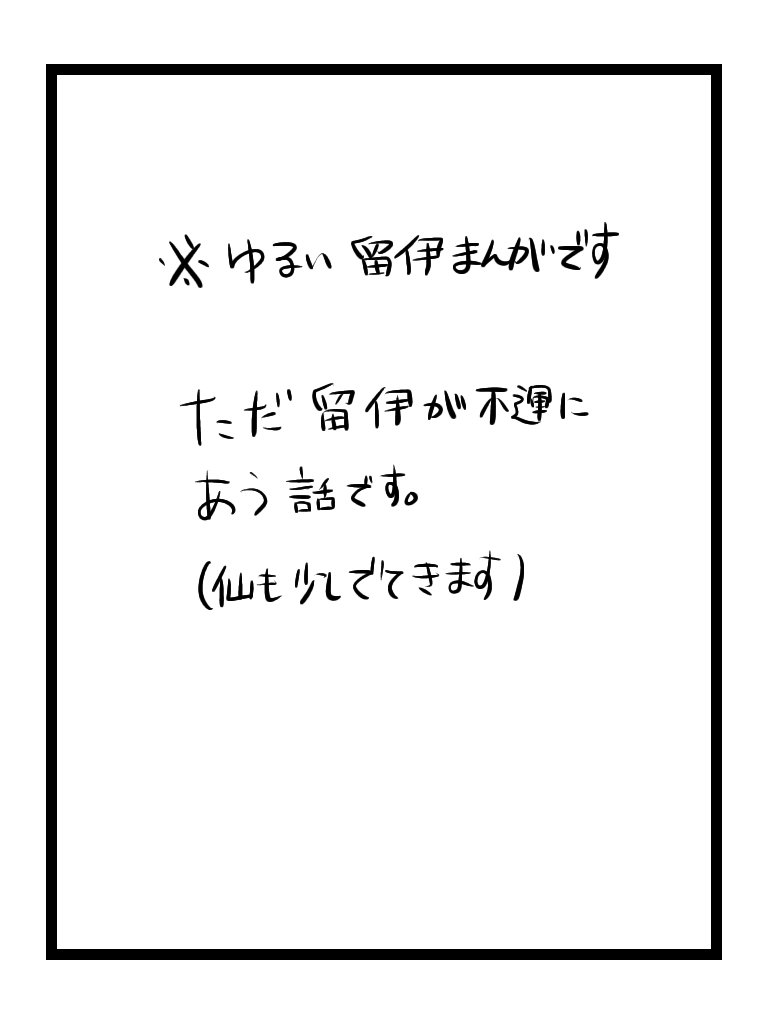 ※ゆるい留伊まんがです
ただ留伊が不運に
あう話です。
(仙も少しでてきます)